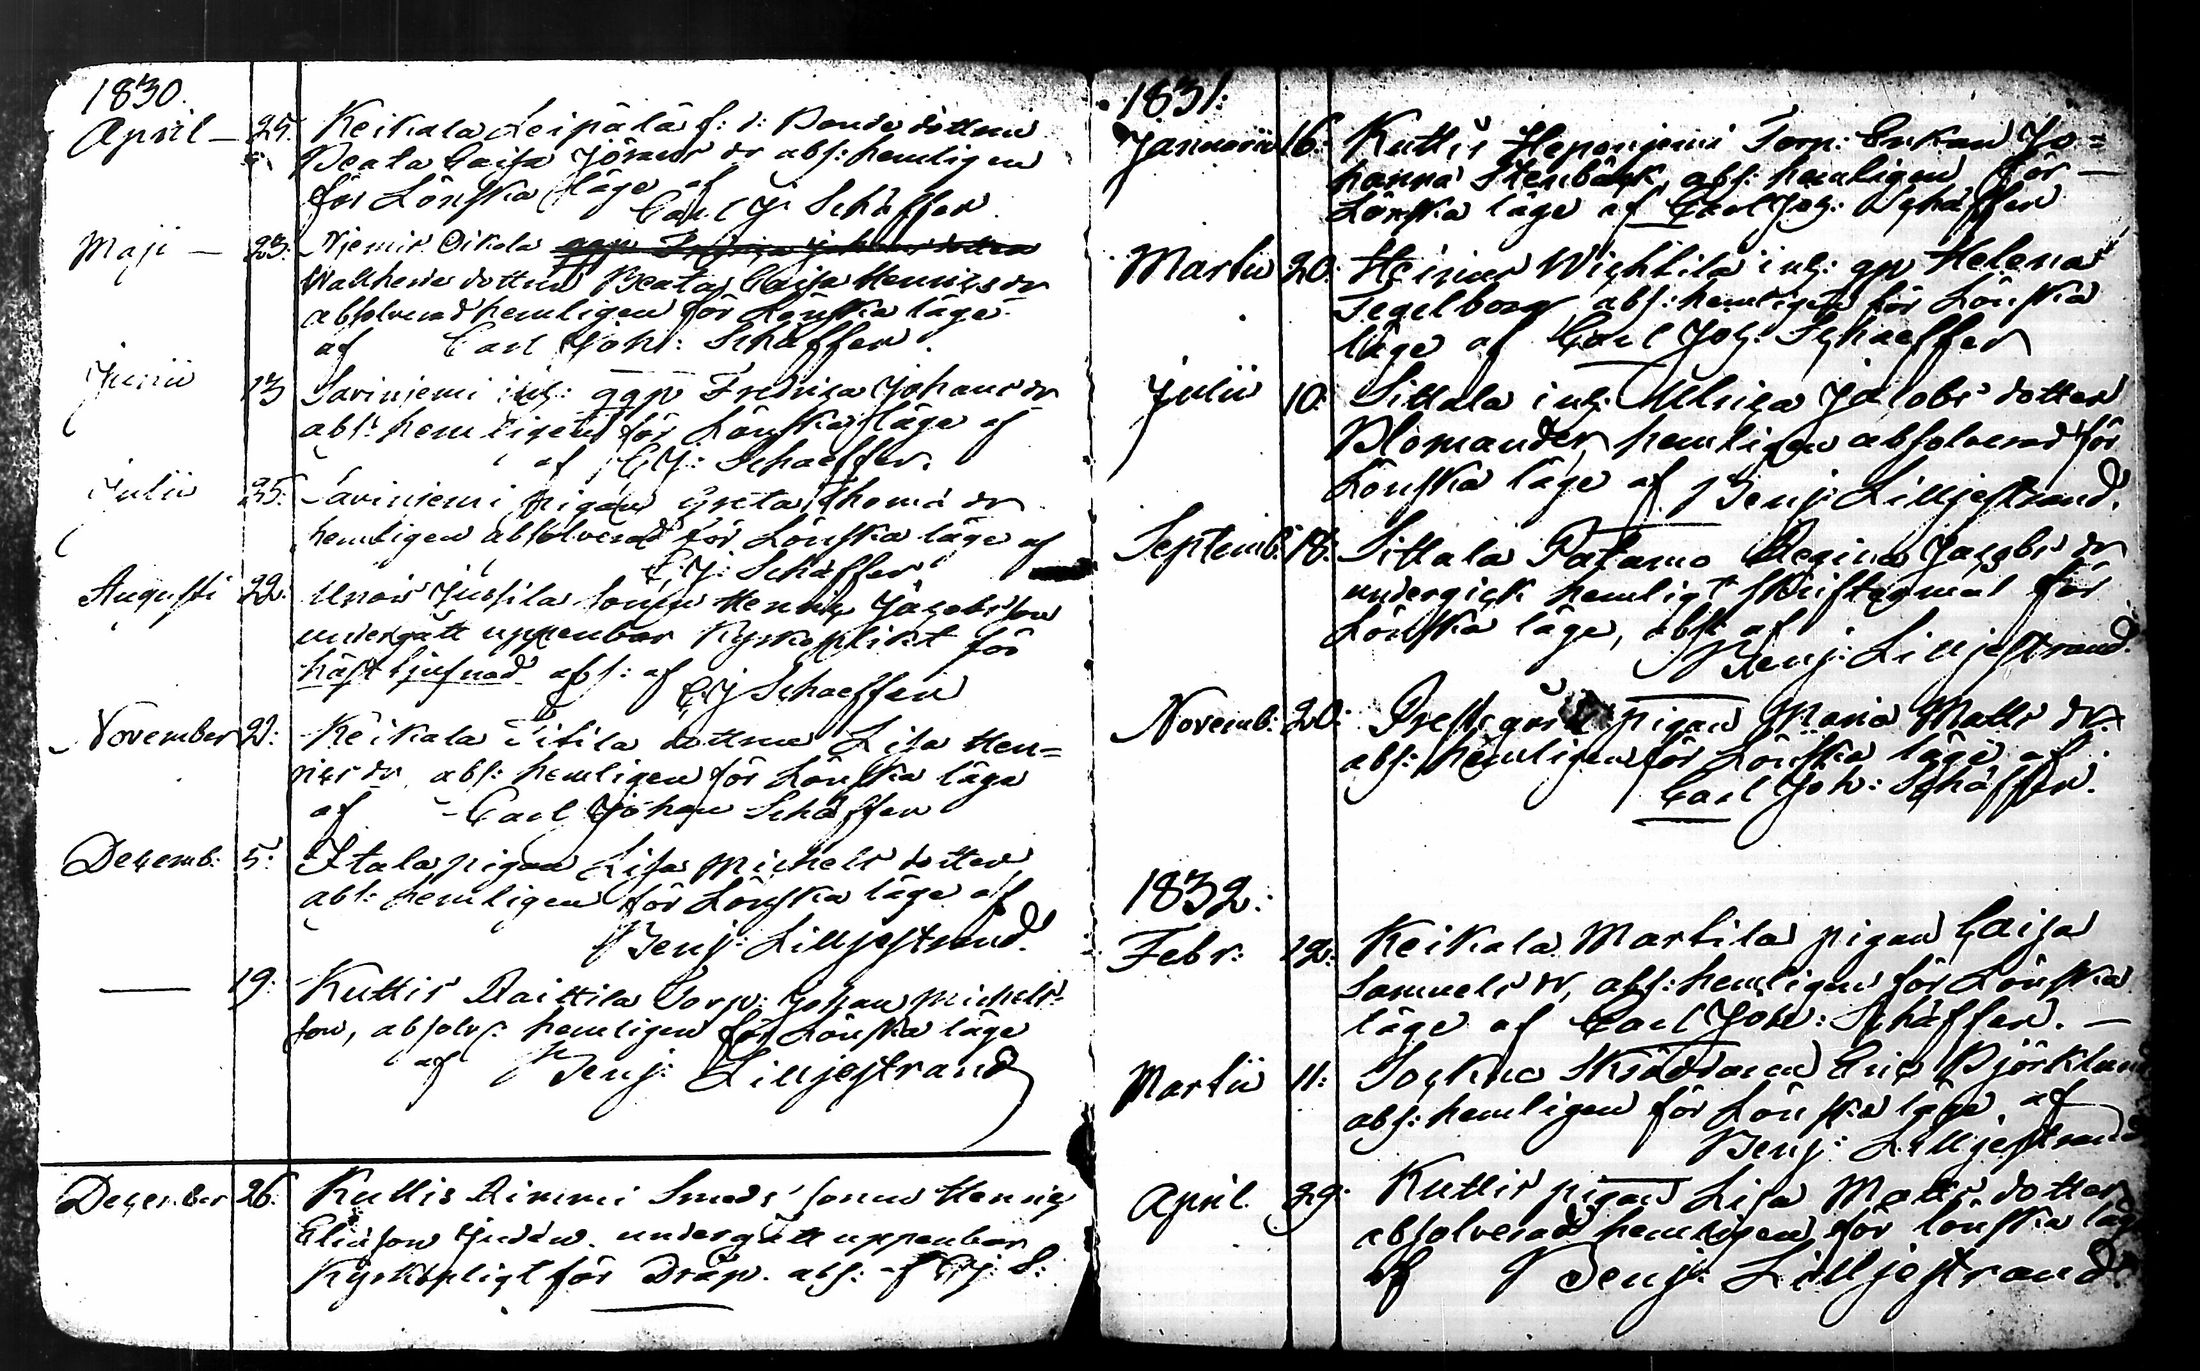 1830.
April — 25. Keikala Leipälä f: d: Bonde dottren
Beata Caisa Jörans dr abs: hemligen
för Lönska läge af
Carl J: Schäffer.
Maji — 23. Njemis Oikola
Wallherde dottren Beata Caisa Henrics dr
absolverad hemligen för Lönska läge
af Carl Joh: Schäffer.
Junii 13 Saviniemi inh: ggp Fredrica Johans dr
abs: hemligen för Lönska läge af
af C J: Schaeffer.
Julii 25: Saviniemi pigan Greta Thomæ dr
hemligen absolverad för Lönska läge af
C: J: Schäffer
Augusti 22. Jussila sonen Henric Jacobsson
undergått uppenbar Kyrkoplikt för
häst tjufnad abs: af C J Schaeffer
November 21: Keikala Titila dottren Lisa Hen=
rics dr abs: hemligen för Lönska läge
af Carl Johan Schäffer
Decemb: 5: Itala pigan Lisa Michels dotter
abs: hemligen för Lönska läge af
Benj: Lilljestrand.
— 19: Kuttis Raittila Torp: Johan Michels-
son, absolv: hemligen för Lönska läge
af Benj: Lilljestrand
December 26. Kuttis Rimmi Smeds sonen Henric
Eliasson Judén. undergått uppenbar
Kyrkopligt för Dråp. abs: af C J: S:
1831:
Januarii 16: Kuttis Heponjemi Torp: Enkan Jo=
hanna Stenbäck abs: hemligen för —
Lönska läge af Carl Joh: Schäffer
Martii 20: Heinis Wichtila inh: gp Helena
Tegelborg abs: hemligen för Lönska
läge af Carl Joh: Schaeffer
Julii 10: Sillala inh: Ulrica Jacobs dotter
Blomander, hemligen absolverad för
Lönska läge af Benj: Lilljestrand.
Septemb: 18: Sillala Patamo Regina Jacobs dr
undergick hemligt Skriftermål för
Lönska läge, abs: af
Benj: Lilljestrand.
Novemb: 20: Prestgårds pigan Maria Matts dr
abs: hemligen för Lönska läge af
Carl Joh: Schäffer.
1832:
Febr: 12: Keikala Martila pigan Caisa
Samuels dr, abs: hemligen för Lönska
läge af Carl Joh: Schäffer. —
Martii 11: Sockne Skräddaren Eric Björklund
abs: hemligen för Lönska läge af
Benj: Lilljestrand
April 29: Kuttis pigan Lisa Matts dotter
absolverad hemligen för lönska läge
af Benj: Lilljestrand.